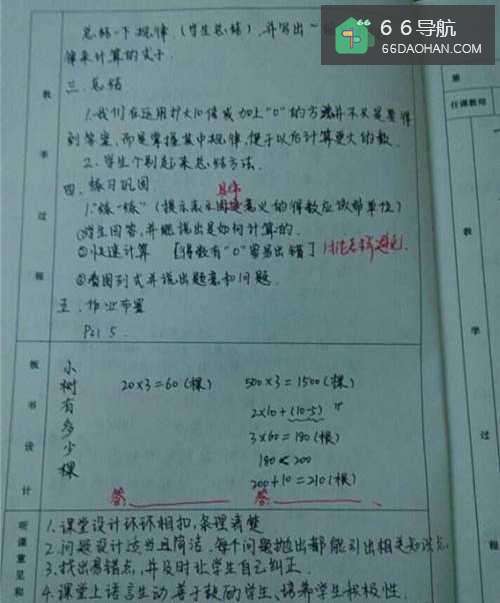 66导航
66DAOHAN.COM
总结一下规律（学生总结），并写出一
律来计算的式子.
三. 总结
1.我们在运用扩大10倍或加上"0"的方法并不只是要得
到答案，而是掌握其中规律，便于以后计算更大的数.
2. 学生个别起来总结方法.
四. 练习巩固
具体
1."练一练"（提示表示 意义的得数应该带单位）
①学生回答，并继说出是如何计算的.
②快速计算 [得数有"0"容易出错]
③看图列式并说出题意和问题.
五. 作业布置
P21 5.
教学过程
板书设计
小树有多少棵
20×3=60(棵) 500×3=1500(棵)
2×10+(10-5)
3×60=180(棵)
180<200
200+10=210(棵)
答: 答:
听课意见和
1.课堂设计环环相扣，条理清楚
2.问题设计适当且简洁，每个问题抛出都能引出相关知识点.
3.找出易错点，并及时让学生自己纠正.
4.课堂上语言生动善于鼓励学生、培养学生积极性.
任课教师
教学过程